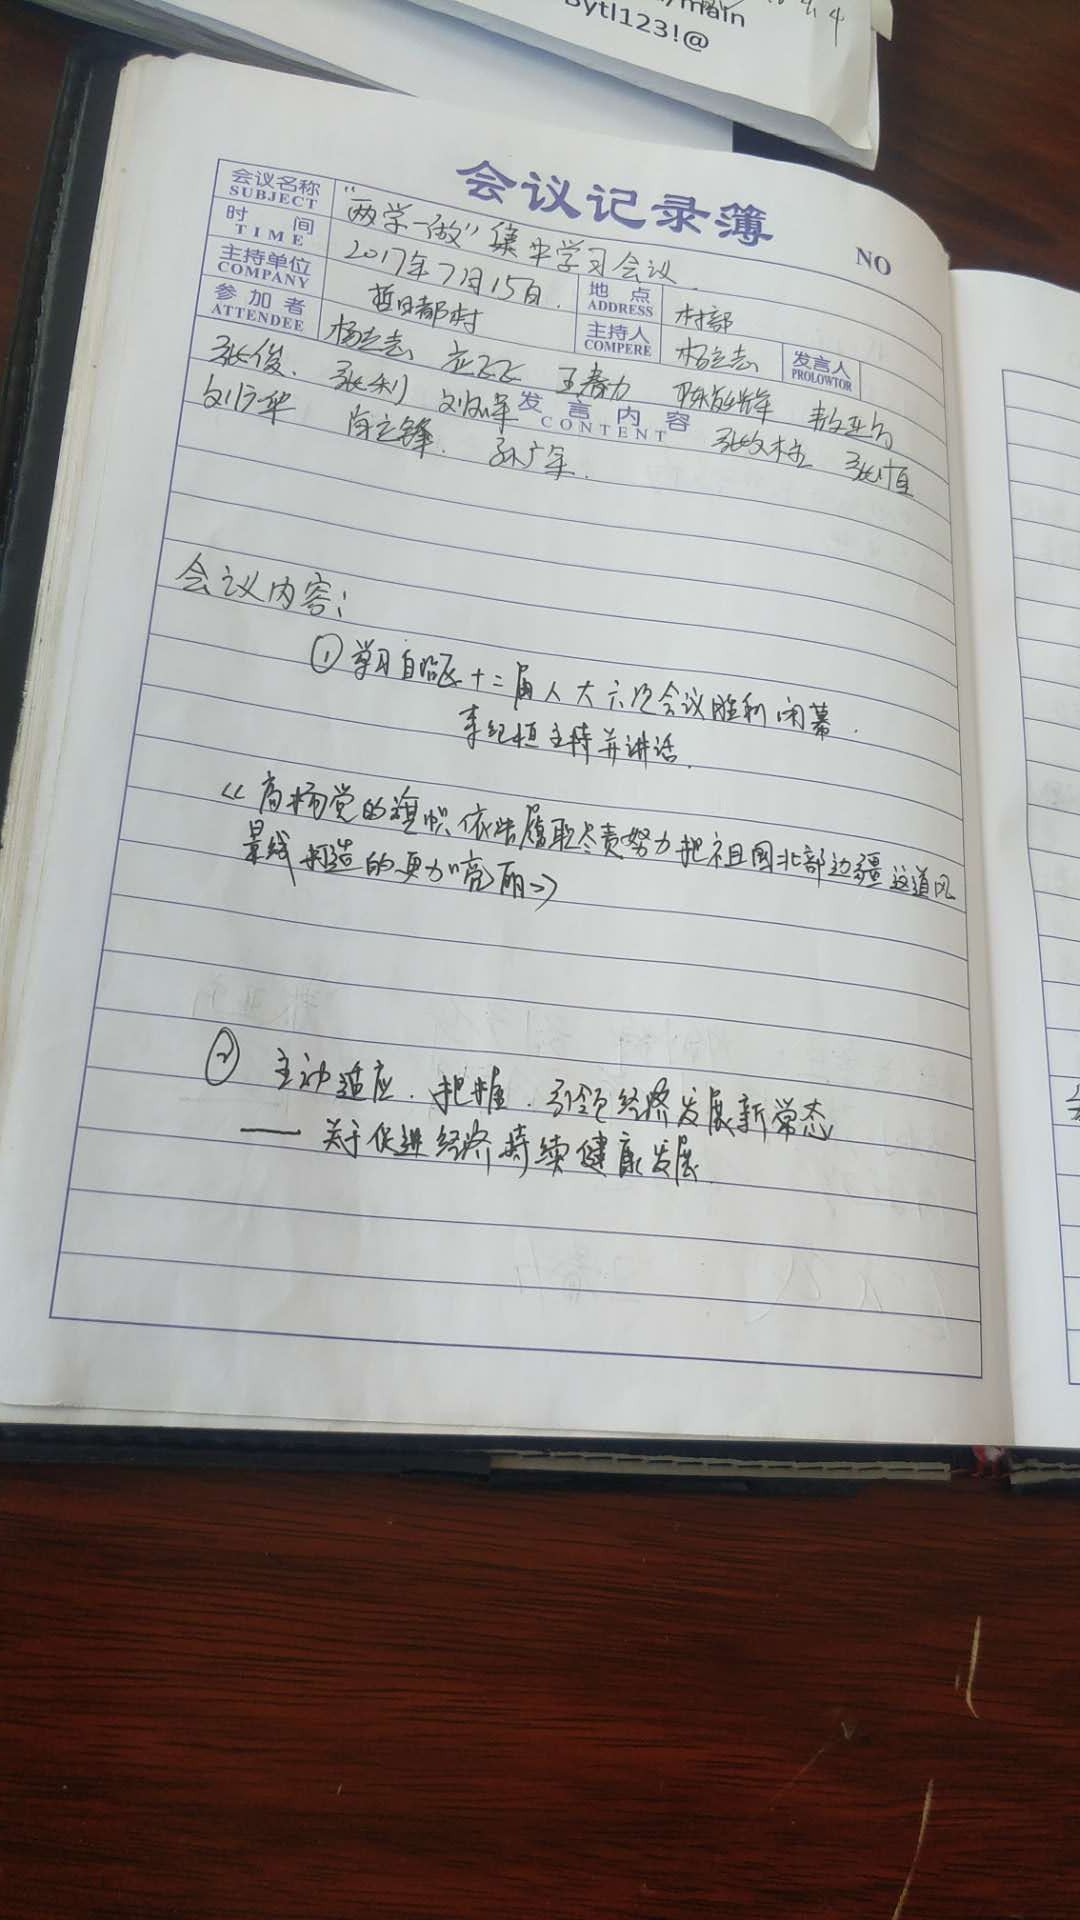 main
Bytl123!@
会议记录簿
NO
会议名称 SUBJECT "两学一做"集中学习会议.
时间 TIME 2017年7月15日. 地点 ADDRESS 村部
主持单位 COMPANY 哲日都村 主持人 COMPERE 杨立志 发言人 PROLOWTOR
参加者 ATTENDEE 杨立志 王春力
张俊. 张利
发言内容 CONTENT
孙广军.
会议内容:
① 学习自治区十二届人大六次会议胜利闭幕.
李纪恒主持并讲话.
《高扬党的旗帜依法履职尽责努力把祖国北部边疆这道风
景线打造的更加"亮丽"》
② 主动适应.把握.引领经济发展新常态
——关于促进经济持续健康发展.